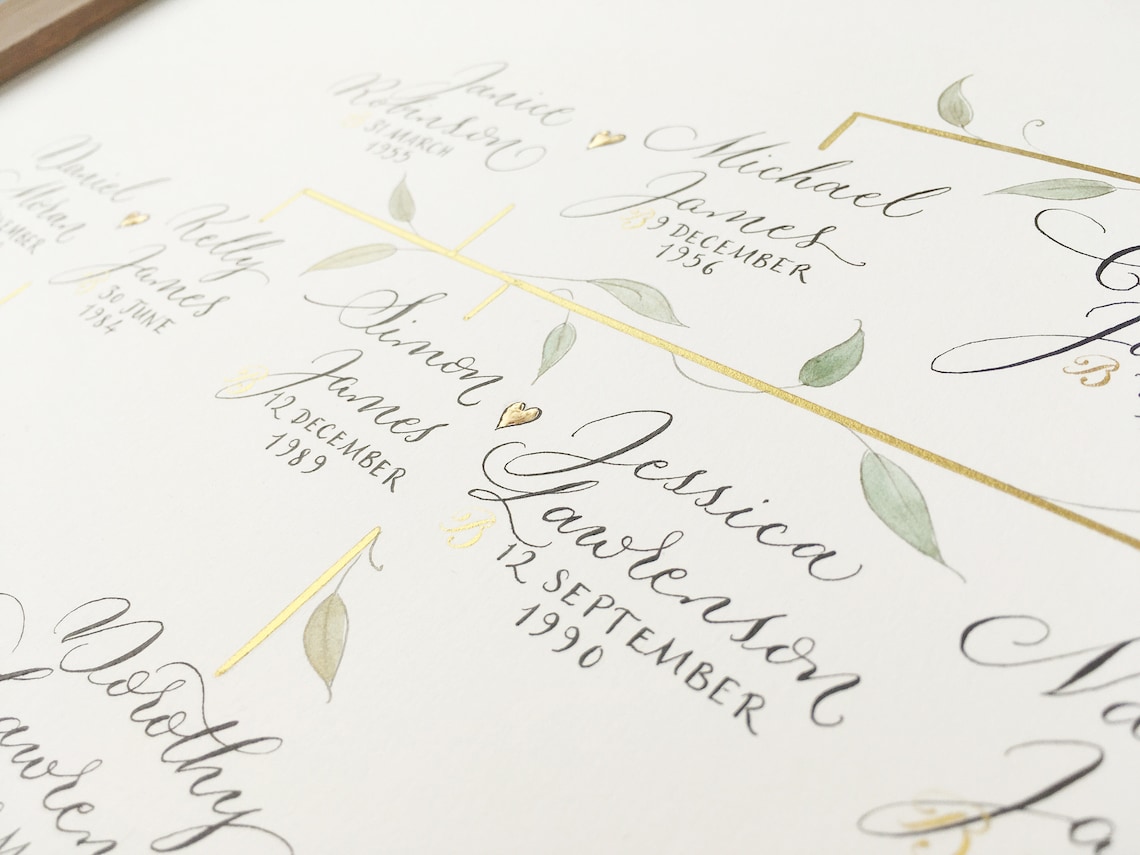 Janice
Robinson
B 31 MARCH
1955
Michael
James
B 9 DECEMBER
1956
Daniel
Moran
Kelly
James
30 JUNE
1984
Simon
James
B 12 DECEMBER
1989
Jessica
Lawrenson
B 12 SEPTEMBER
1990
B
Dorothy
B